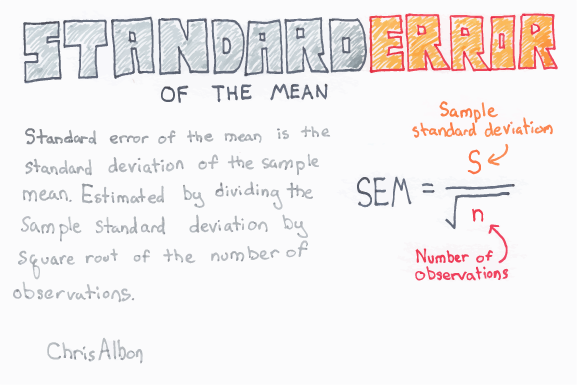 STANDARD ERROR
OF THE MEAN
Standard error of the mean is the
standard deviation of the sample
mean. Estimated by dividing the
Sample standard deviation by
square root of the number of
observations.
Sample
standard deviation
S
SEM =
√n
Number of
observations
Chris Albon